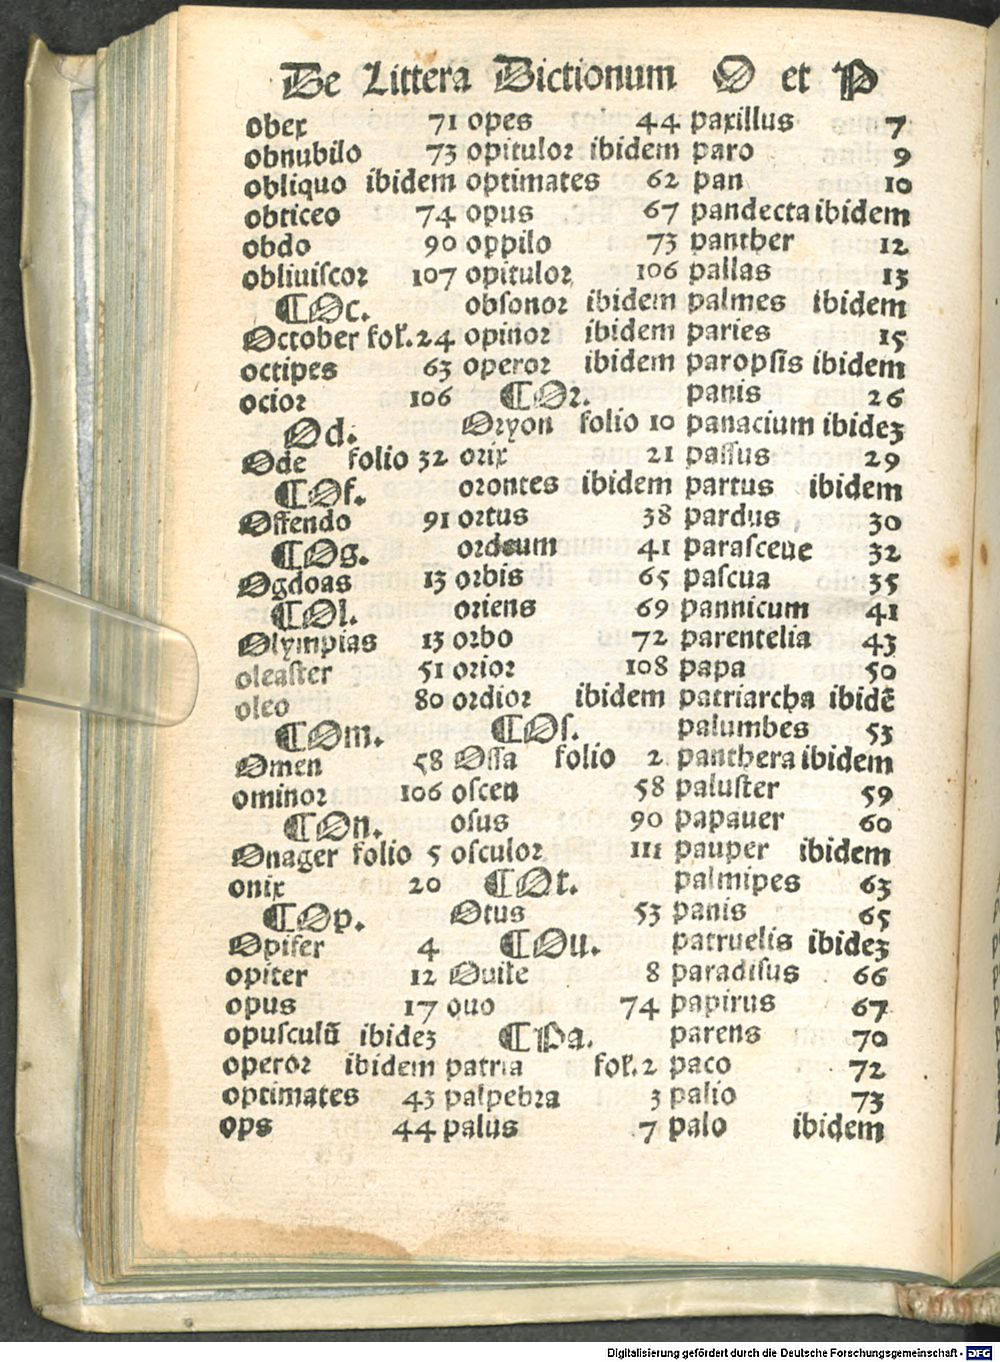 De Littera Dictionum O et P
obex 71
obnubilo 73
obliquo ibidem
obticeo 74
obdo 90
obliuiſcor 107
¶Oc.
October fol.24
octipes 63
ocior 106
Od.
Ode folio 32
¶Of.
Offendo 91
¶Og.
Ogdoas 13
¶Ol.
Olympias 13
oleaſter 51
oleo 80
¶Om.
Omen 58
ominor 106
¶On.
Onager folio 5
onix 20
¶Op.
Opifer 4
opiter 12
opus 17
opuſculū ibideʒ
operor ibidem
optimates 43
ops 44
opes 44
opitulor ibidem
optimates 62
opus 67
oppilo 73
opitulor 106
obſonor ibidem
opinor ibidem
operor ibidem
¶Or.
Oryon folio 10
orix 21
orontes ibidem
ortus 38
ordeum 41
orbis 65
oriens 69
orbo 72
orior 108
ordior ibidem
¶Oſ.
Oſſa folio 2
oſcen 58
oſus 90
oſculor 111
¶Ot.
Otus 53
¶Ou.
Ouile 8
ouo 74
¶Pa.
patria fol.2
palpebra 3
palus 7
paxillus 7
paro 9
pan 10
pandecta ibidem
panther 12
pallas 13
palmes ibidem
paries 15
paropſis ibidem
panis 26
panacium ibideʒ
paſſus 29
partus ibidem
pardus 30
paraſceue 32
paſcua 35
pannicum 41
parentelia 43
papa 50
patriarcha ibidē
palumbes 53
panthera ibidem
paluſter 59
papauer 60
pauper ibidem
palmipes 63
panis 65
patruelis ibideʒ
paradiſus 66
papirus 67
parens 70
paco 72
palio 73
palo ibidem
Digitalisierung gefördert durch die Deutsche Forschungsgemeinschaft - DFG